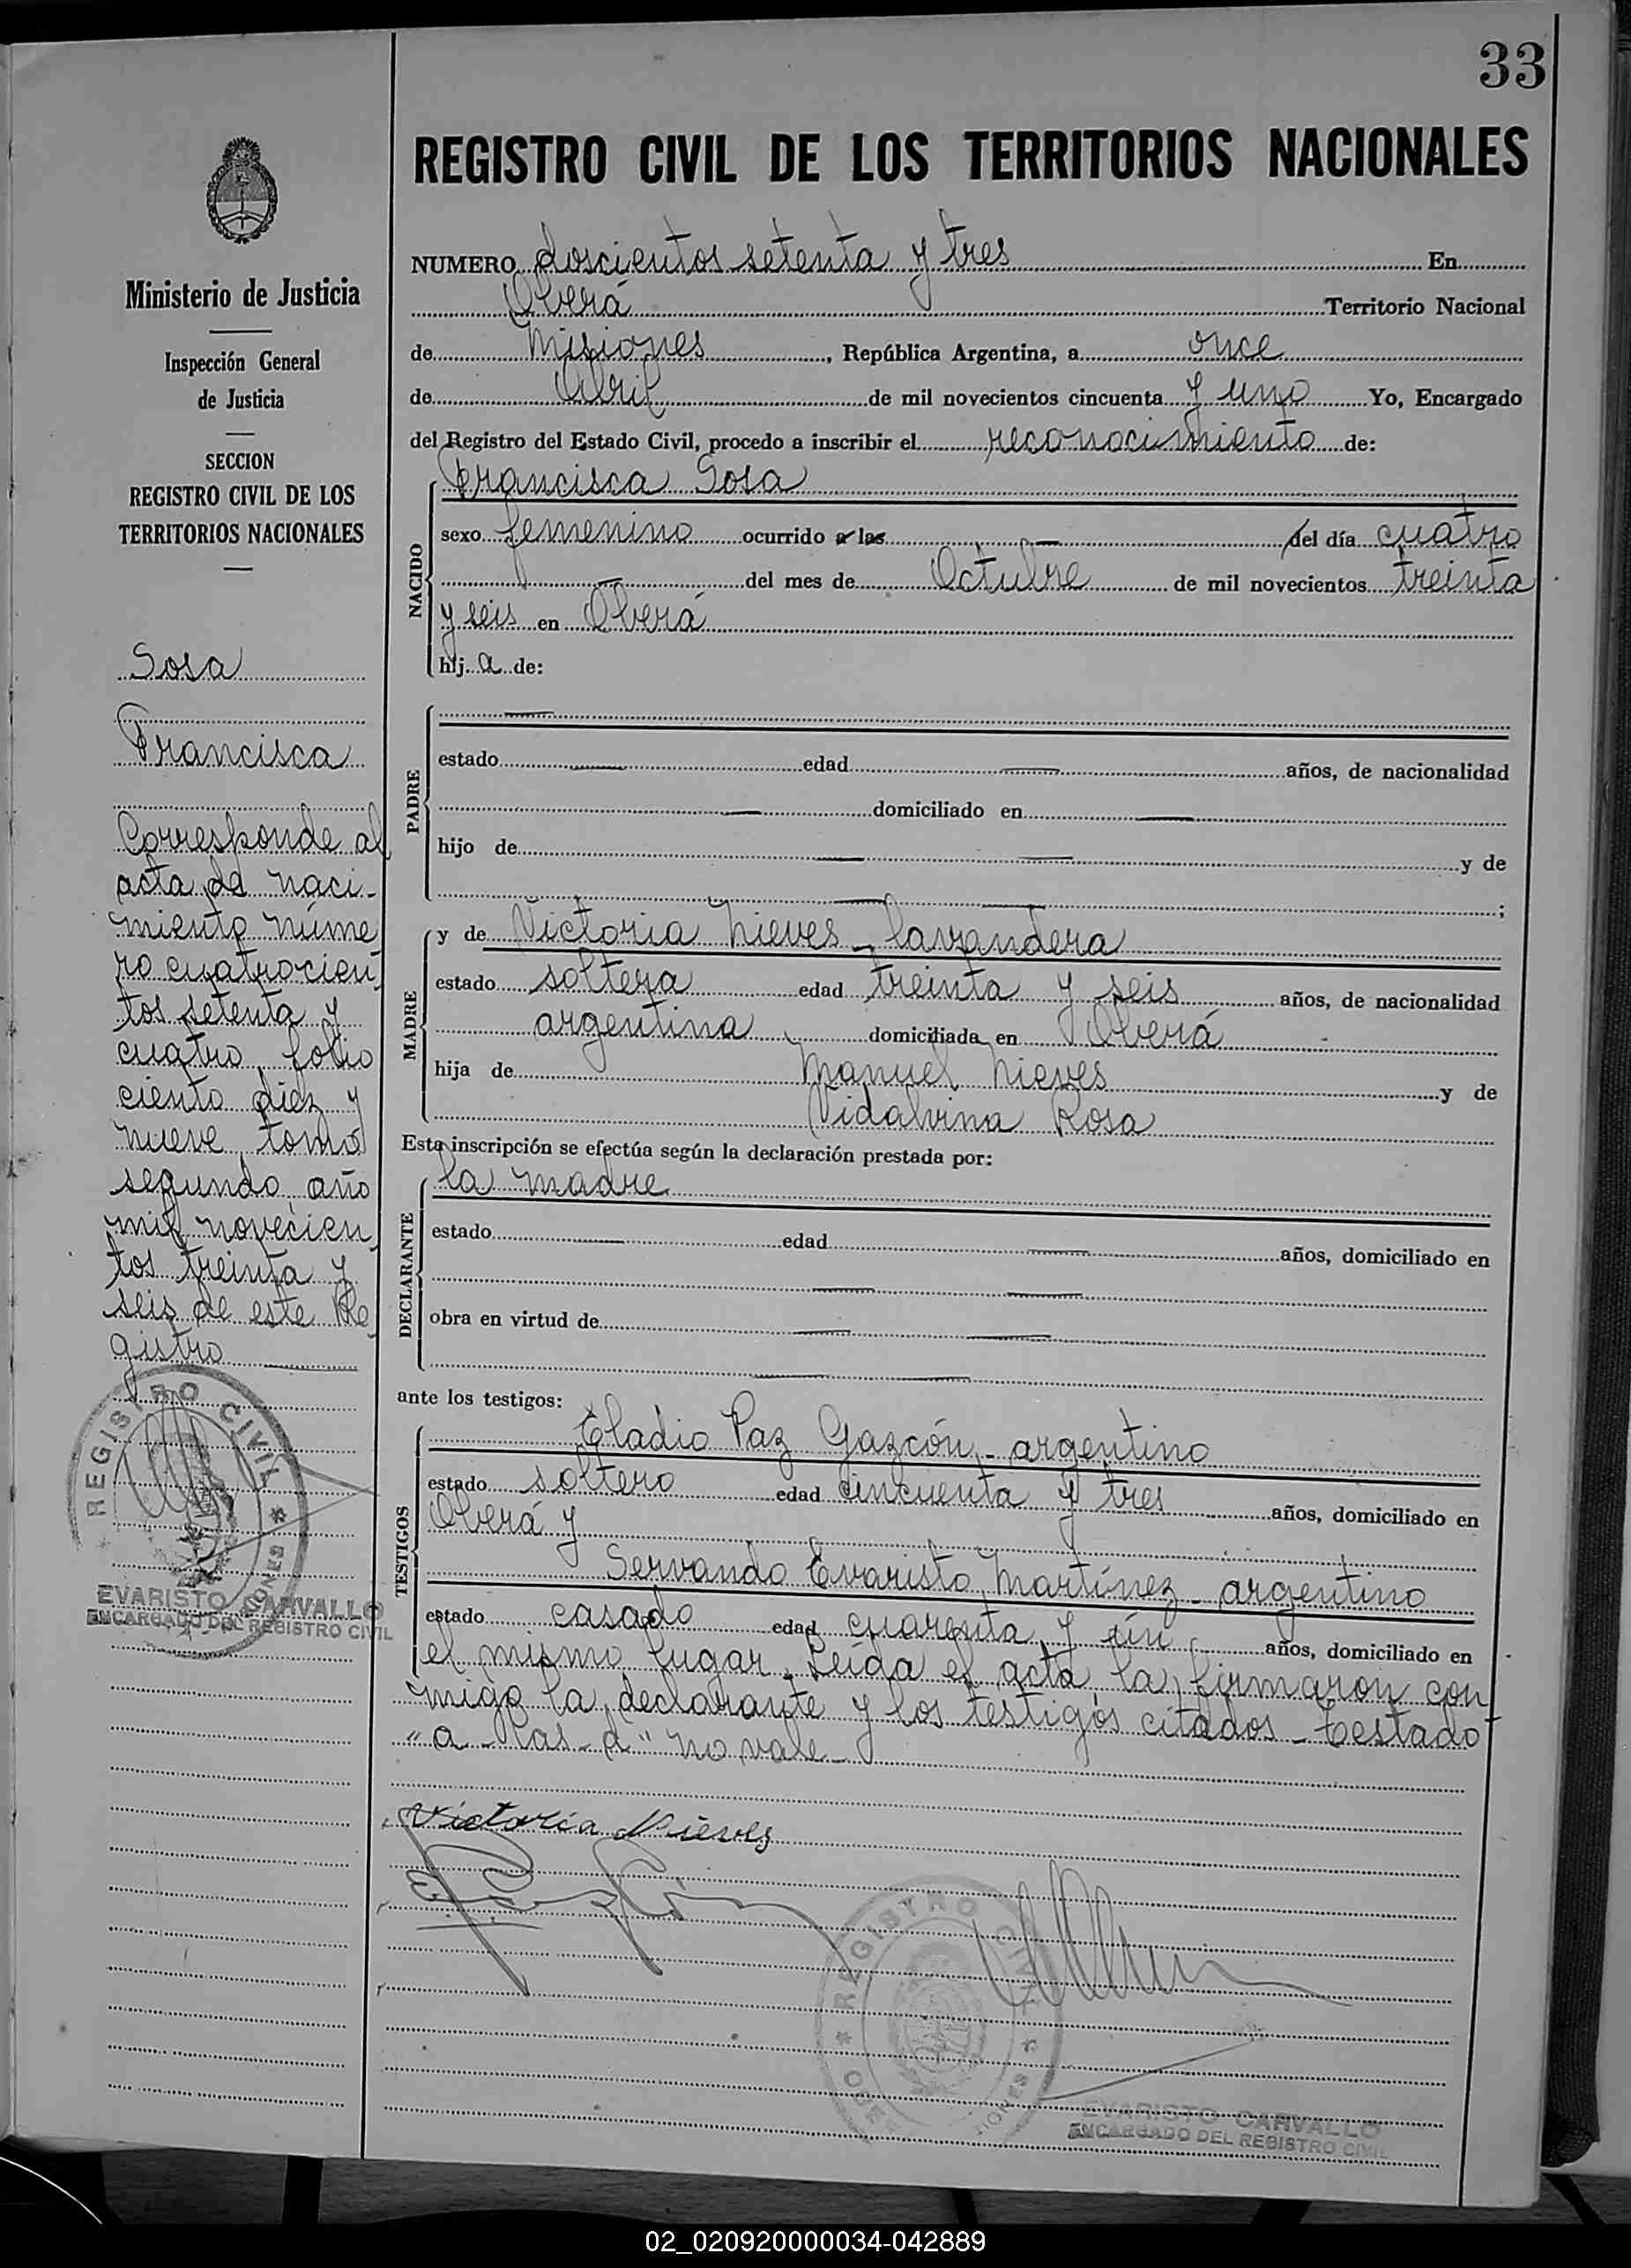 33
REGISTRO CIVIL DE LOS TERRITORIOS NACIONALES
Ministerio de Justicia
Inspección General
de Justicia
SECCION
REGISTRO CIVIL DE LOS
TERRITORIOS NACIONALES
Sosa
Francisca
Corresponde al
acta de naci-
miento núme
ro cuatrocien
tos setenta y
cuatro, folio
ciento diez y
nueve, tomo
segundo año
mil novecien
tos treinta y
seis de este Re
gistro
REGISTRO CIVIL
EVARISTO CARVALLO
ENCARGADO DEL REGISTRO CIVIL
NUMERO doscientos setenta y tres En
Oberá Territorio Nacional
de Misiones, República Argentina, a once
de Abril de mil novecientos cincuenta y uno Yo, Encargado
del Registro del Estado Civil, procedo a inscribir el reconocimiento de:
NACIDO
Francisca Sosa
sexo femenino ocurrido a las — del día cuatro
— del mes de Octubre de mil novecientos treinta
y seis en Oberá
hij a de:
PADRE
—
estado — edad — años, de nacionalidad
— domiciliado en —
hijo de — — y de
— — ;
MADRE
y de Victoria Nieves - lavandera
estado soltera edad treinta y seis años, de nacionalidad
argentina domiciliada en Oberá
hija de Manuel Nieves y de
Vidalvina Rosa
Esta inscripción se efectúa según la declaración prestada por:
DECLARANTE
la madre
estado — edad — años, domiciliado en
— —
obra en virtud de — —
— —
ante los testigos:
TESTIGOS
Eladio Paz Gazcón - argentino
estado soltero edad cincuenta y tres años, domiciliado en
Oberá y
Servando Evaristo Martínez - argentino
estado casado edad cuarenta y ún años, domiciliado en
el mismo lugar. Leída el acta la firmaron con
migo la declarante y los testigos citados - Testado
"a - las - d" no vale -
Victoria Nieves
REGISTRO CIVIL
EVARISTO CARVALLO
ENCARGADO DEL REGISTRO CIVIL
02_020920000034-042889